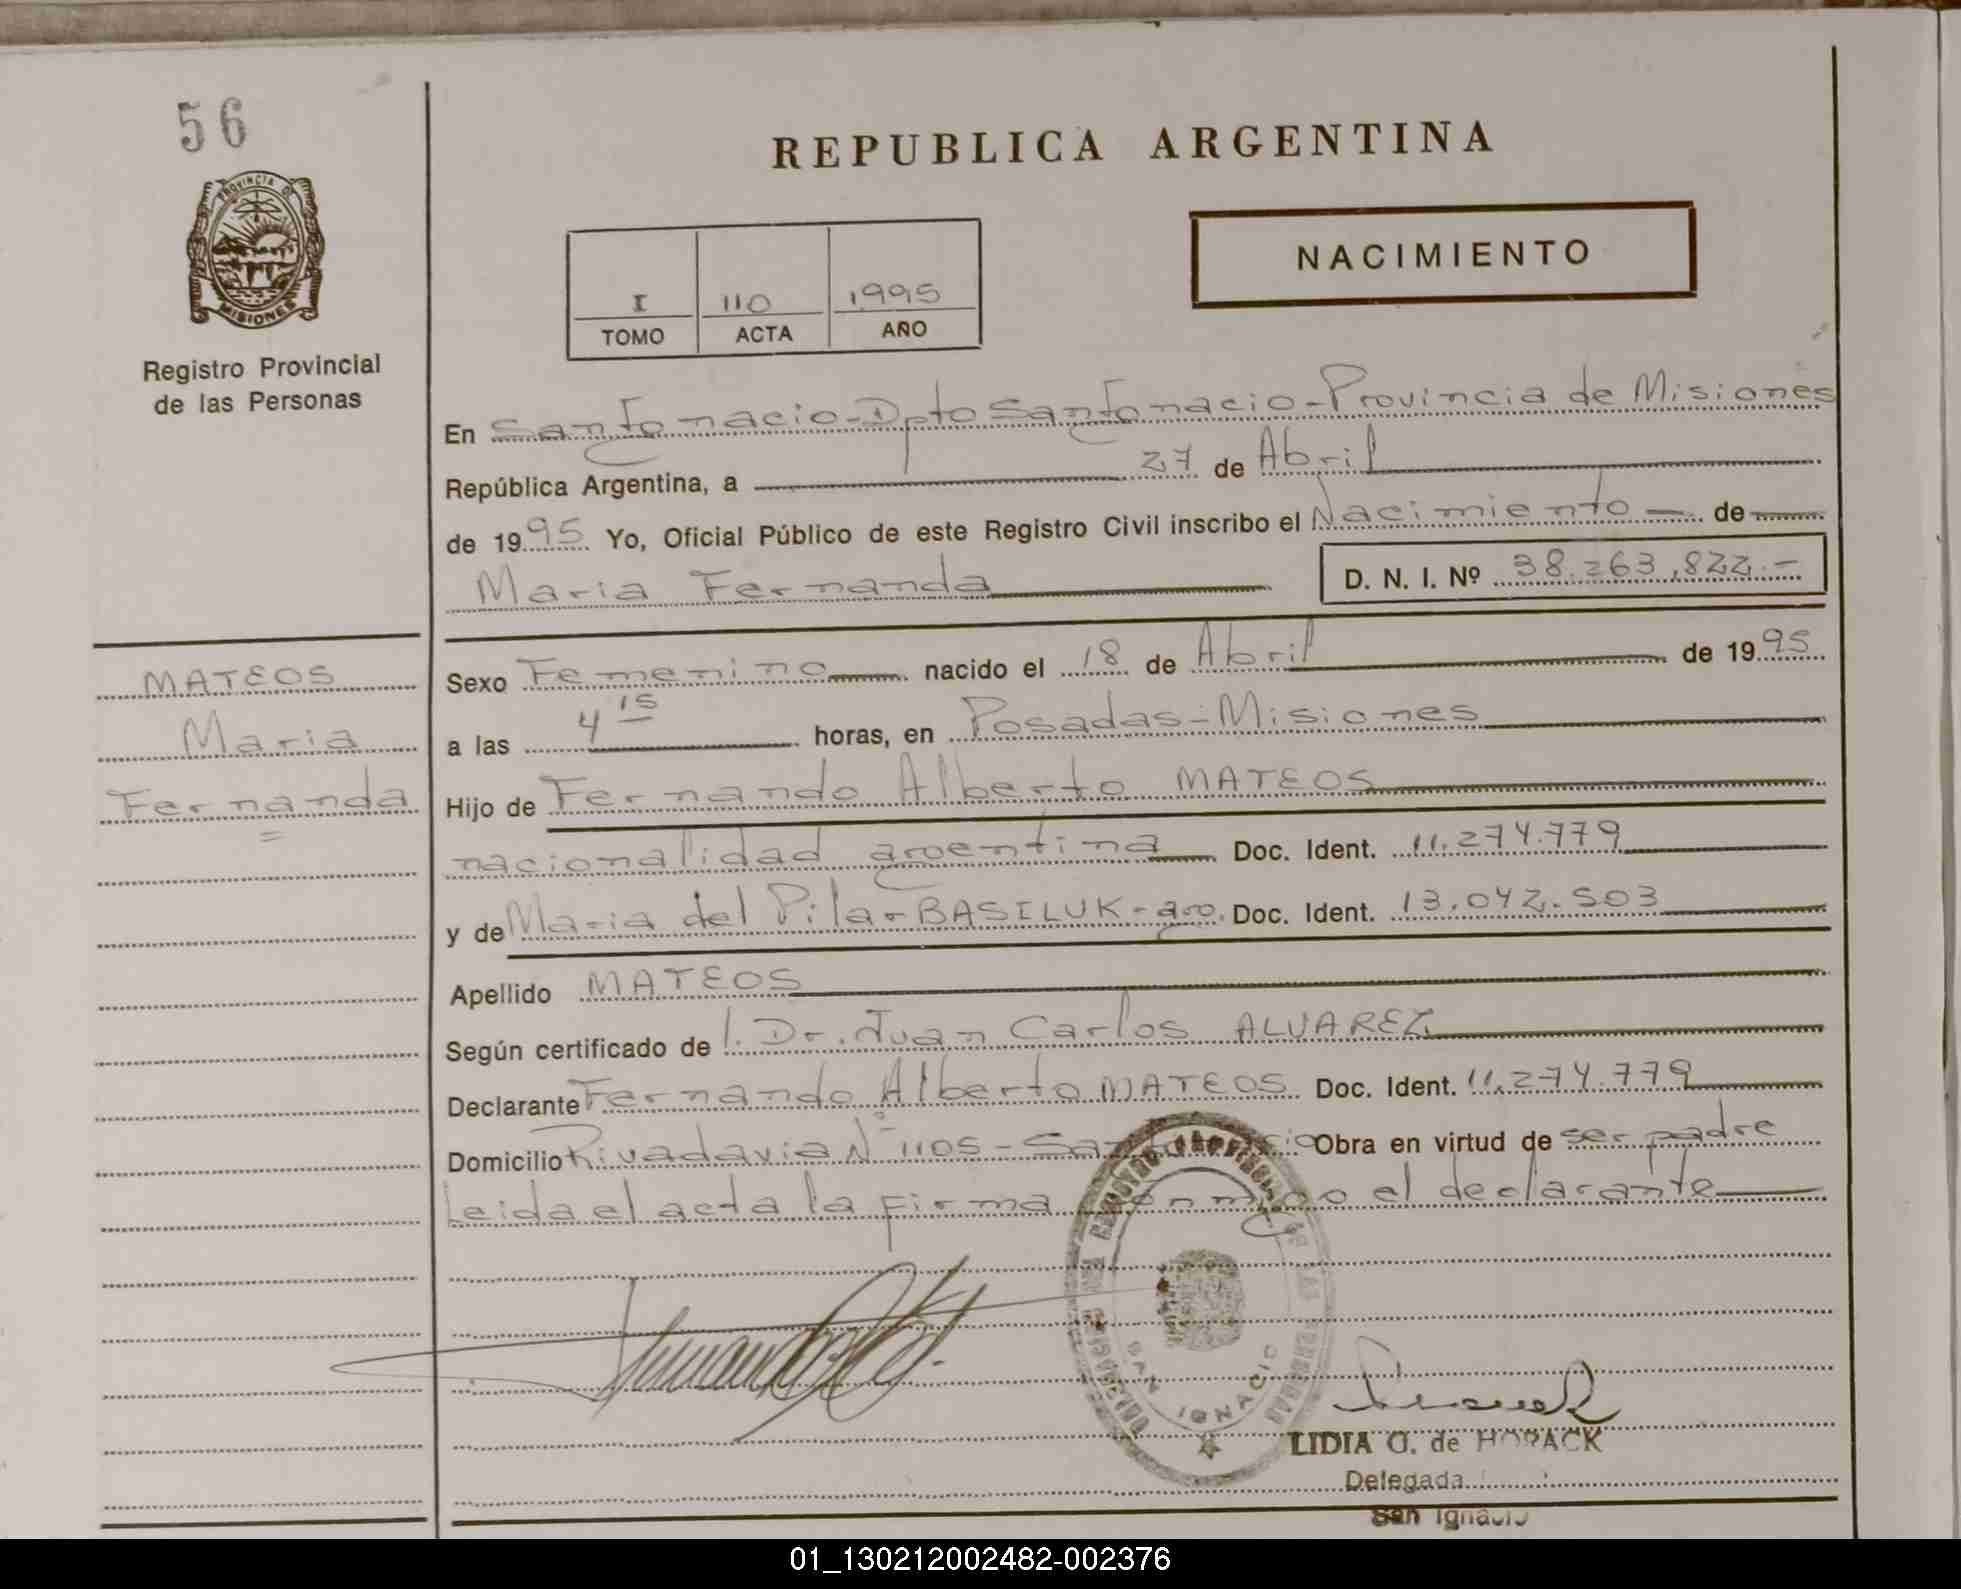 56
PROVINCIA DE
MISIONES
Registro Provincial
de las Personas
REPUBLICA ARGENTINA
NACIMIENTO
I 110 1995
TOMO ACTA AÑO
En San Ignacio - Dpto San Ignacio - Provincia de Misiones
República Argentina, a 27 de Abril
de 1995 Yo, Oficial Público de este Registro Civil inscribo el Nacimiento — de
Maria Fernanda D. N. I. Nº 38.263.822.-
MATEOS
Maria
Fernanda
=
Sexo Femenino nacido el 18 de Abril de 1995
a las 4 15 horas, en Posadas - Misiones
Hijo de Fernando Alberto MATEOS
nacionalidad argentina Doc. Ident. 11.274.779
y de Maria del Pilar BASILUK - arg. Doc. Ident. 13.042.503
Apellido MATEOS
Según certificado de l. Dr. Juan Carlos ALVAREZ
Declarante Fernando Alberto MATEOS Doc. Ident. 11.274.779
Domicilio Rivadavia Nº 1105 - San Ignacio Obra en virtud de ser padre
Leida el acta la firma conmigo el declarante
SAN IGNACIO
LIDIA G. de HORACK
Delegada
San Ignacio
01_130212002482-002376